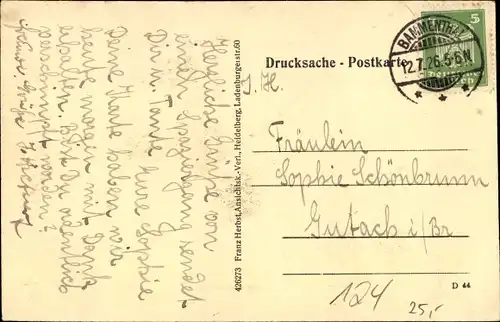 Herzliche Grüße von
einem Spaziergang sendet
Dir u. Tante Eure Sophie
Deine Karte haben wir
heute morgen mit Dank
erhalten. Bist Du ordentlich
verschimpft worden?
Grüße
426273 Franz Herbst, Ansichtsk.-Verl., Heidelberg, Ladenburgerstr. 60
Drucksache - Postkarte
BAMMENTHAL
12.7.26.5-6N
5
Fräulein
Sophie Schönbrunn
Gutach i/Br
D 44
124
25,-